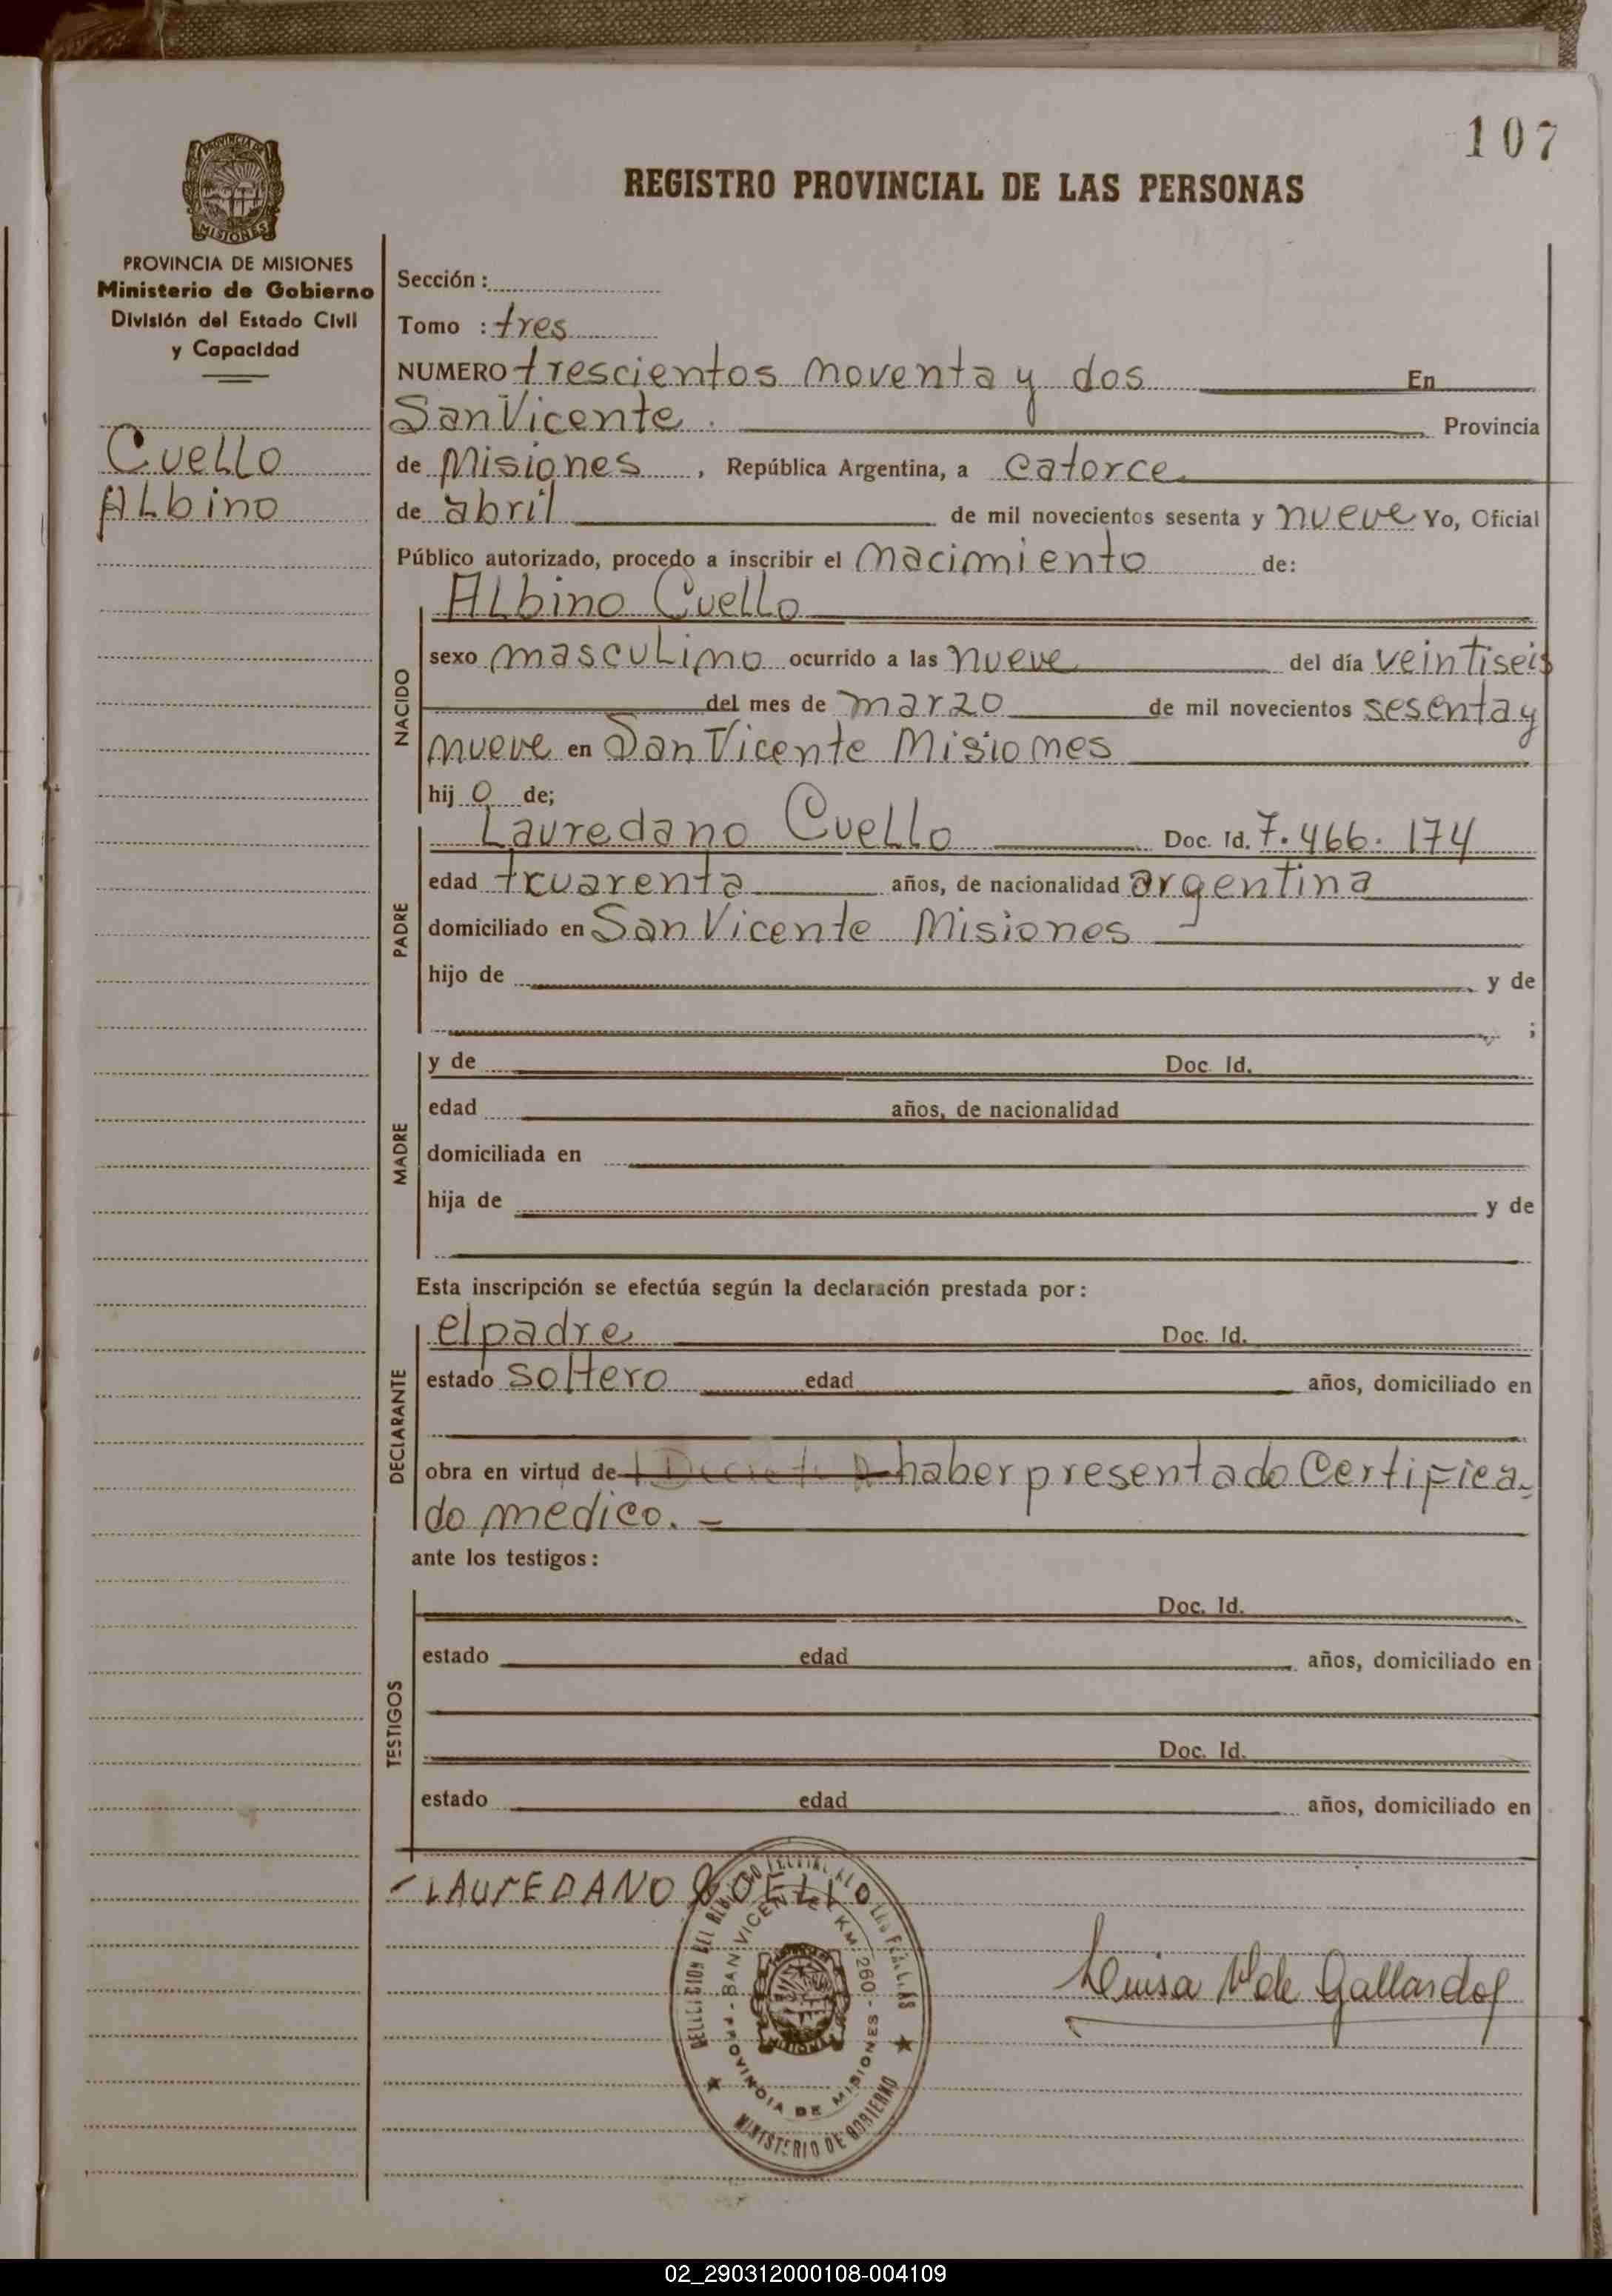 107
REGISTRO PROVINCIAL DE LAS PERSONAS
PROVINCIA DE MISIONES
Ministerio de Gobierno
División del Estado Civil
y Capacidad
Cuello
Albino
Sección :
Tomo : tres
NUMERO trescientos noventa y dos En
San Vicente. Provincia
de Misiones , República Argentina, a catorce
de abril de mil novecientos sesenta y nueve Yo, Oficial
Público autorizado, procedo a inscribir el nacimiento de:
Albino Cuello
NACIDO
sexo masculino ocurrido a las nueve del día veintiseis
del mes de marzo de mil novecientos sesenta y
nueve en San Vicente Misiones
hij o de;
PADRE
Lauredano Cuello Doc. Id. 7.466.174
edad tcuarenta años, de nacionalidad argentina
domiciliado en San Vicente Misiones
hijo de y de
;
MADRE
y de Doc. Id.
edad años, de nacionalidad
domiciliada en
hija de y de
Esta inscripción se efectúa según la declaración prestada por:
DECLARANTE
el padre Doc. Id.
estado soltero edad años, domiciliado en
obra en virtud de haber presentado Certifica-
do medico. -
ante los testigos:
TESTIGOS
Doc. Id.
estado edad años, domiciliado en
Doc. Id.
estado edad años, domiciliado en
LAUREDANO
SAN VICENTE KM 260 -
PROVINCIA DE MISIONES
MINISTERIO DE GOBIERNO
Luisa V. de Gallardo
02_290312000108-004109